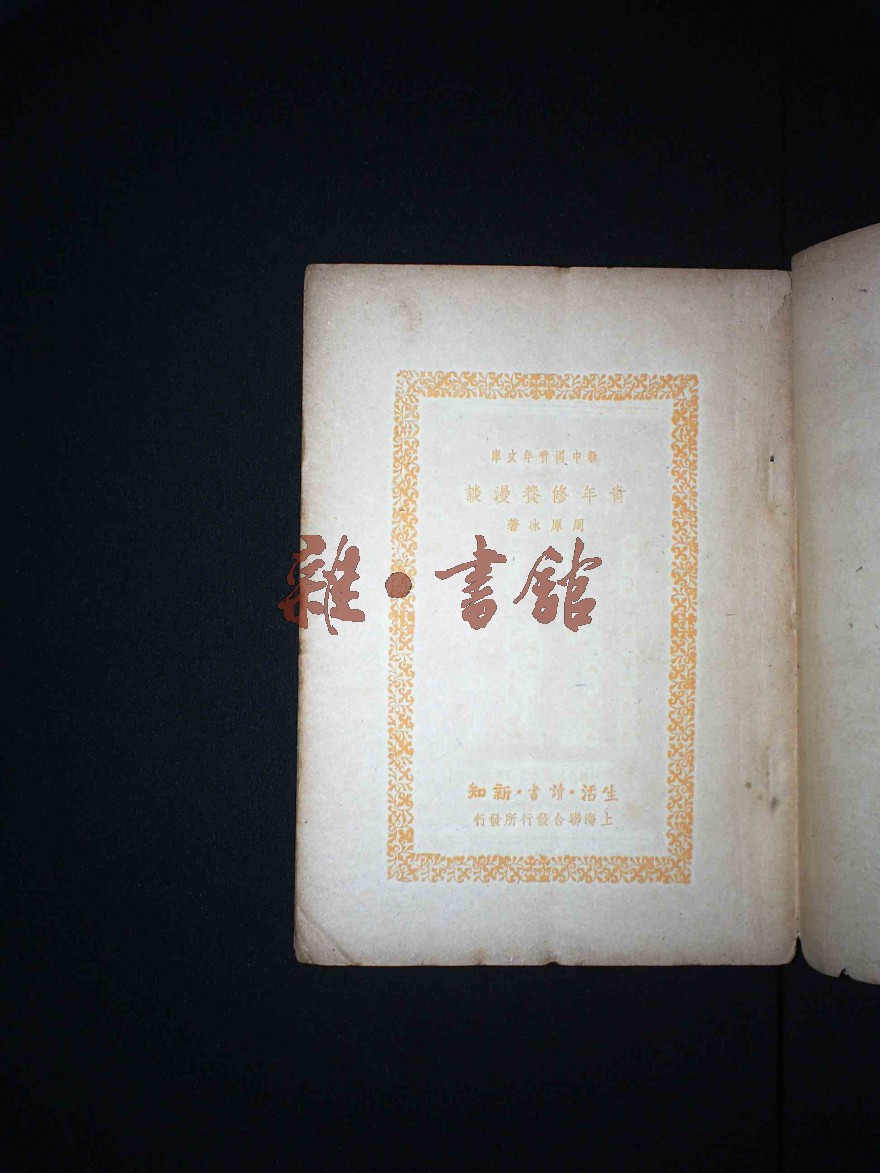 新中國青年文庫
青年修養漫談
周原冰著
雜·書館
生活·讀書·新知
上海聯合發行所發行